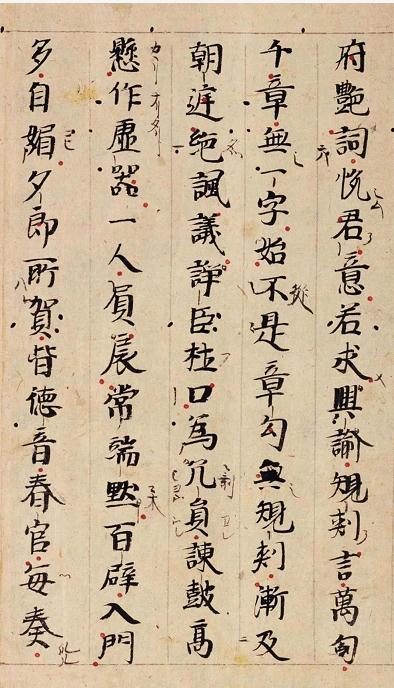 府艶詞悦君意若求興諭規刾言萬句
千章無一字始不是章句無規刾漸及
朝廷絶諷議諍臣杜口爲冗員諫鼓高
懸作虛器一人負扆常端默百辟入門
多自媚夕郎所賀皆德音春官毎奏